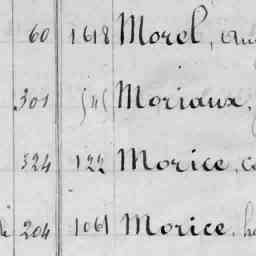 60 1618 Morel,
301 Moriaux,
324 122 Morice,
204 1061 Morice,